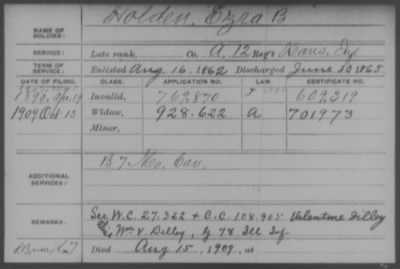 Holden, Ezra B
NAME OF SOLDIER:
SERVICE: Late rank, Co. A, 12 Reg't Kans. Inf
TERM OF SERVICE: Enlisted Aug 16, 1862 Discharged June 30 1865
DATE OF FILING. CLASS. APPLICATION NO. LAW. CERTIFICATE NO.
1890, Apr. 19 Invalid, 769,870 609,319
1909 Oct 13 Widow, 928.622 a 701973
Minor,
ADDITIONAL SERVICES: B 7 Mo. Cav.
REMARKS: See W.C. 27.322 & C.C. 108.905 Valentine Dilley
Wm V. Dilley, G 78 Ill Inf
Died Aug 15, 1909, at